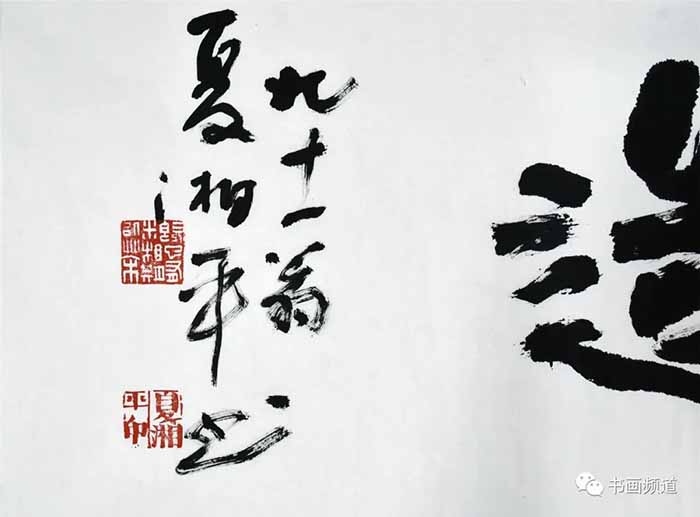 造
九十一翁
夏湘平书
夏湘平印
书画频道